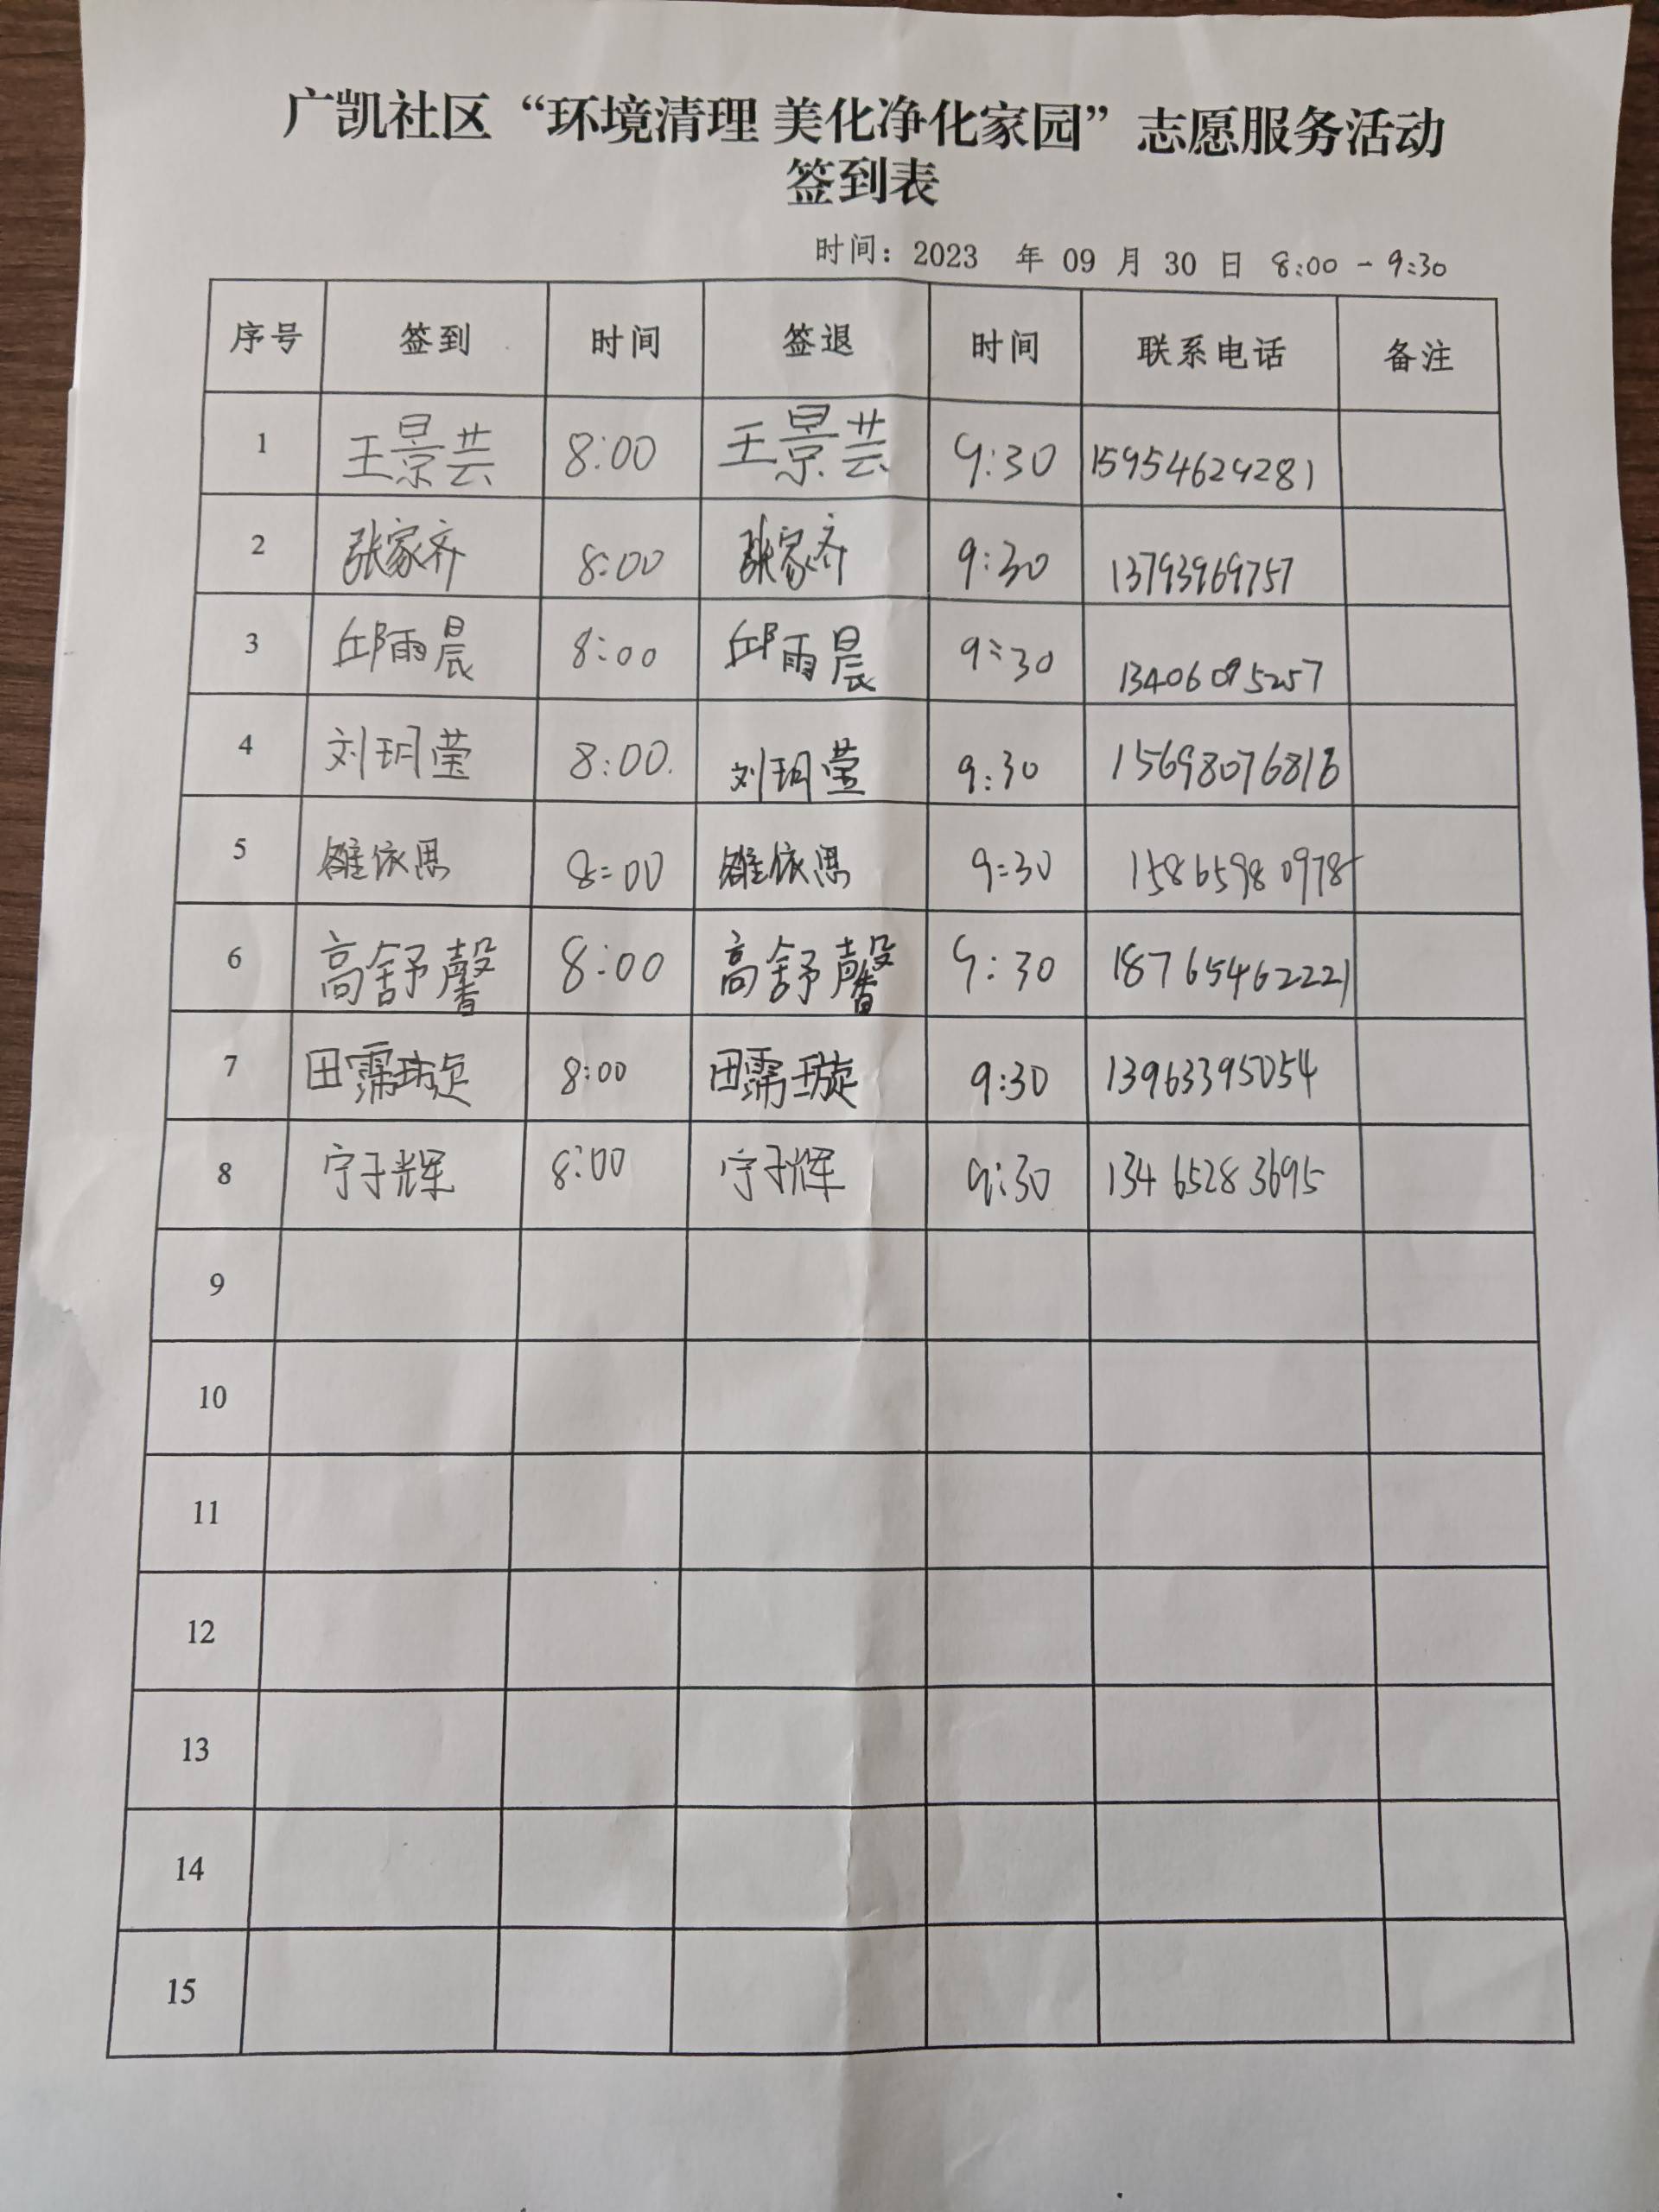 广凯社区“环境清理 美化净化家园”志愿服务活动
签到表
时间：2023 年 09 月 30 日 8:00 - 9:30
序号 签到 时间 签退 时间 联系电话 备注
1 王景芸 8:00 王景芸 9:30 15954629281
2 张家齐 8:00 张家齐 9:30 13793969757
3 邱雨晨 8:00 邱雨晨 9:30 13406095257
4 刘玥莹 8:00. 刘玥莹 9:30 15698076816
5 雒依思 8:00 雒依思 9:30 15865980978
6 高舒馨 8:00 高舒馨 9:30 18765462221
7 田霈璇 8:00 田霈璇 9:30 13963395054
8 宁子辉 8:00 宁子辉 9:30 13465283695
9
10
11
12
13
14
15